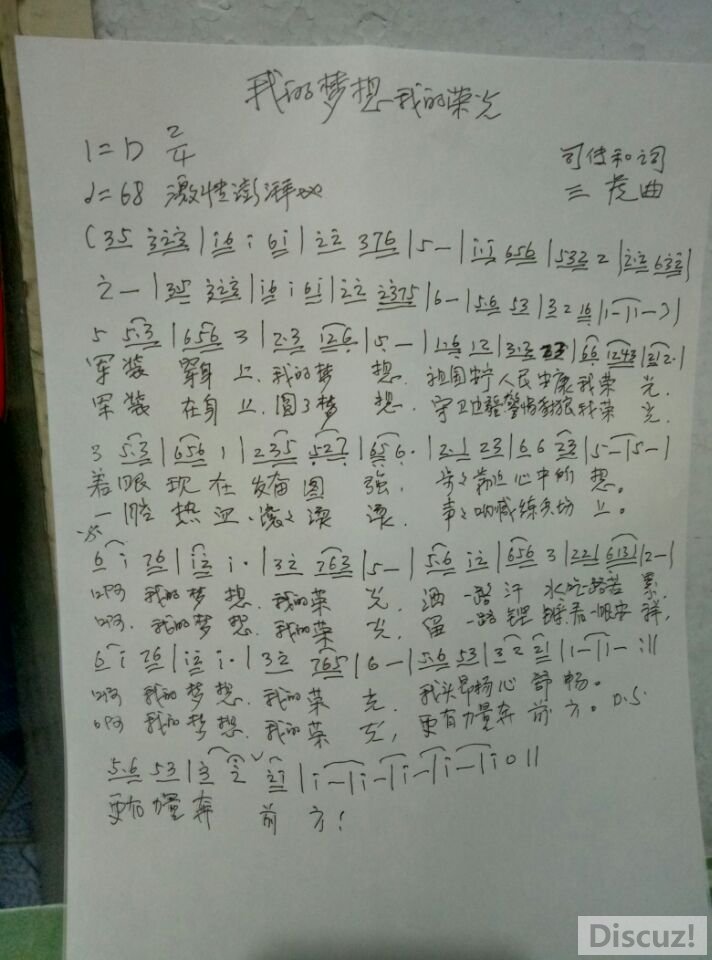 我的梦想我的荣光
1=D 2/4
司传和词
♩=68 激情澎湃
三虎曲
(35 323 | i6 i 6i | 22 376 | 5 — | i·i 656 | 532 2 | 2·2 632 |
2 — | 35 323 | i6 i 6i | 22 2375 | 6 — | 5·6 53 | 3 2 16 | 1 — | 1 — )
5 5·3 | 656 3 | 2·3 126 | 5 — | 1·6 12 | 3·3 | 66 1243 | 212· |
军装 穿身上,我的梦 想, 祖国安宁人民安康我荣 光,
军装 在身上,圆了梦 想, 守卫边疆警惕豺狼我荣 光,
3 5·3 | 656 1 | 235 527 | 656· | 2·1 23 | 6 6 23 | 5 — | 5 — |
着眼现在发奋图 强, 步步靠近心中的 想。
一腔热血,滚滚烫 烫, 声声呐喊练兵场 上。
6 i 76 | i2 i· | 32 763 | 5 — | 5·6 i2 | 656 3 | 221 6131 | 2 — |
啊 我的梦想,我的荣 光, 洒一路汗 水吃一路苦 累,
啊,我的梦想,我的荣 光, 留一路 一眼安 祥,
6 i 76 | i2 i· | 32 765 | 6 — | 5·6 53 | 3 2 21 | 1 — | 1 — :||
啊 我的梦想,我的荣 光, 我头昂扬心 舒 畅。
啊 我的梦想,我的荣 光, 更有力量奔 前 方。D.S.
5·6 53 | 3 2 21 | i — | i — | i — | i — | i 0 ||
更有力量奔 前 方!
Discuz!